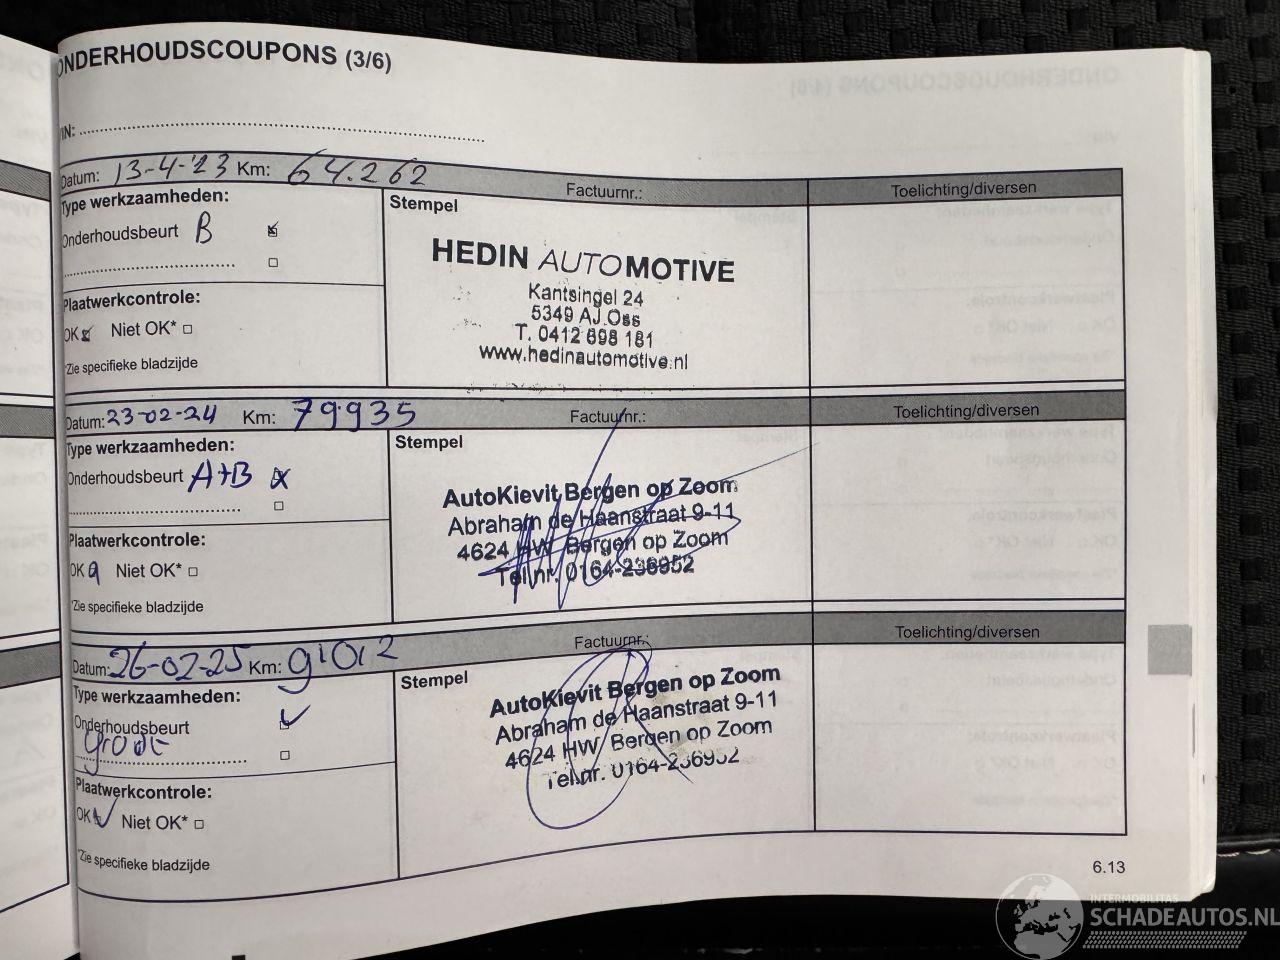 ONDERHOUDSCOUPONS (3/6)
VIN:
Datum: 13-4-'23 Km: 64.262 Factuurnr.: Toelichting/diversen
Type werkzaamheden:
Stempel
Onderhoudsbeurt B
HEDIN AUTOMOTIVE
Kantsingel 24
5349 AJ Oss
T. 0412 698 181
www.hedinautomotive.nl
Plaatwerkcontrole:
OK Niet OK*
*Zie specifieke bladzijde
Datum: 23-02-24 Km: 79935 Factuurnr.: Toelichting/diversen
Type werkzaamheden:
Stempel
Onderhoudsbeurt A+B
AutoKievit Bergen op Zoom
Abraham de Haanstraat 9-11
4624 HW Bergen op Zoom
Tel.nr. 0164-236952
Plaatwerkcontrole:
OK Niet OK*
*Zie specifieke bladzijde
Datum: 26-02-25 Km: 91012 Factuurnr.: Toelichting/diversen
Type werkzaamheden:
Stempel
Onderhoudsbeurt
grote
AutoKievit Bergen op Zoom
Abraham de Haanstraat 9-11
4624 HW Bergen op Zoom
Tel.nr. 0164-236952
Plaatwerkcontrole:
OK Niet OK*
*Zie specifieke bladzijde
6.13
INTERMOBILITAS
SCHADEAUTOS.NL